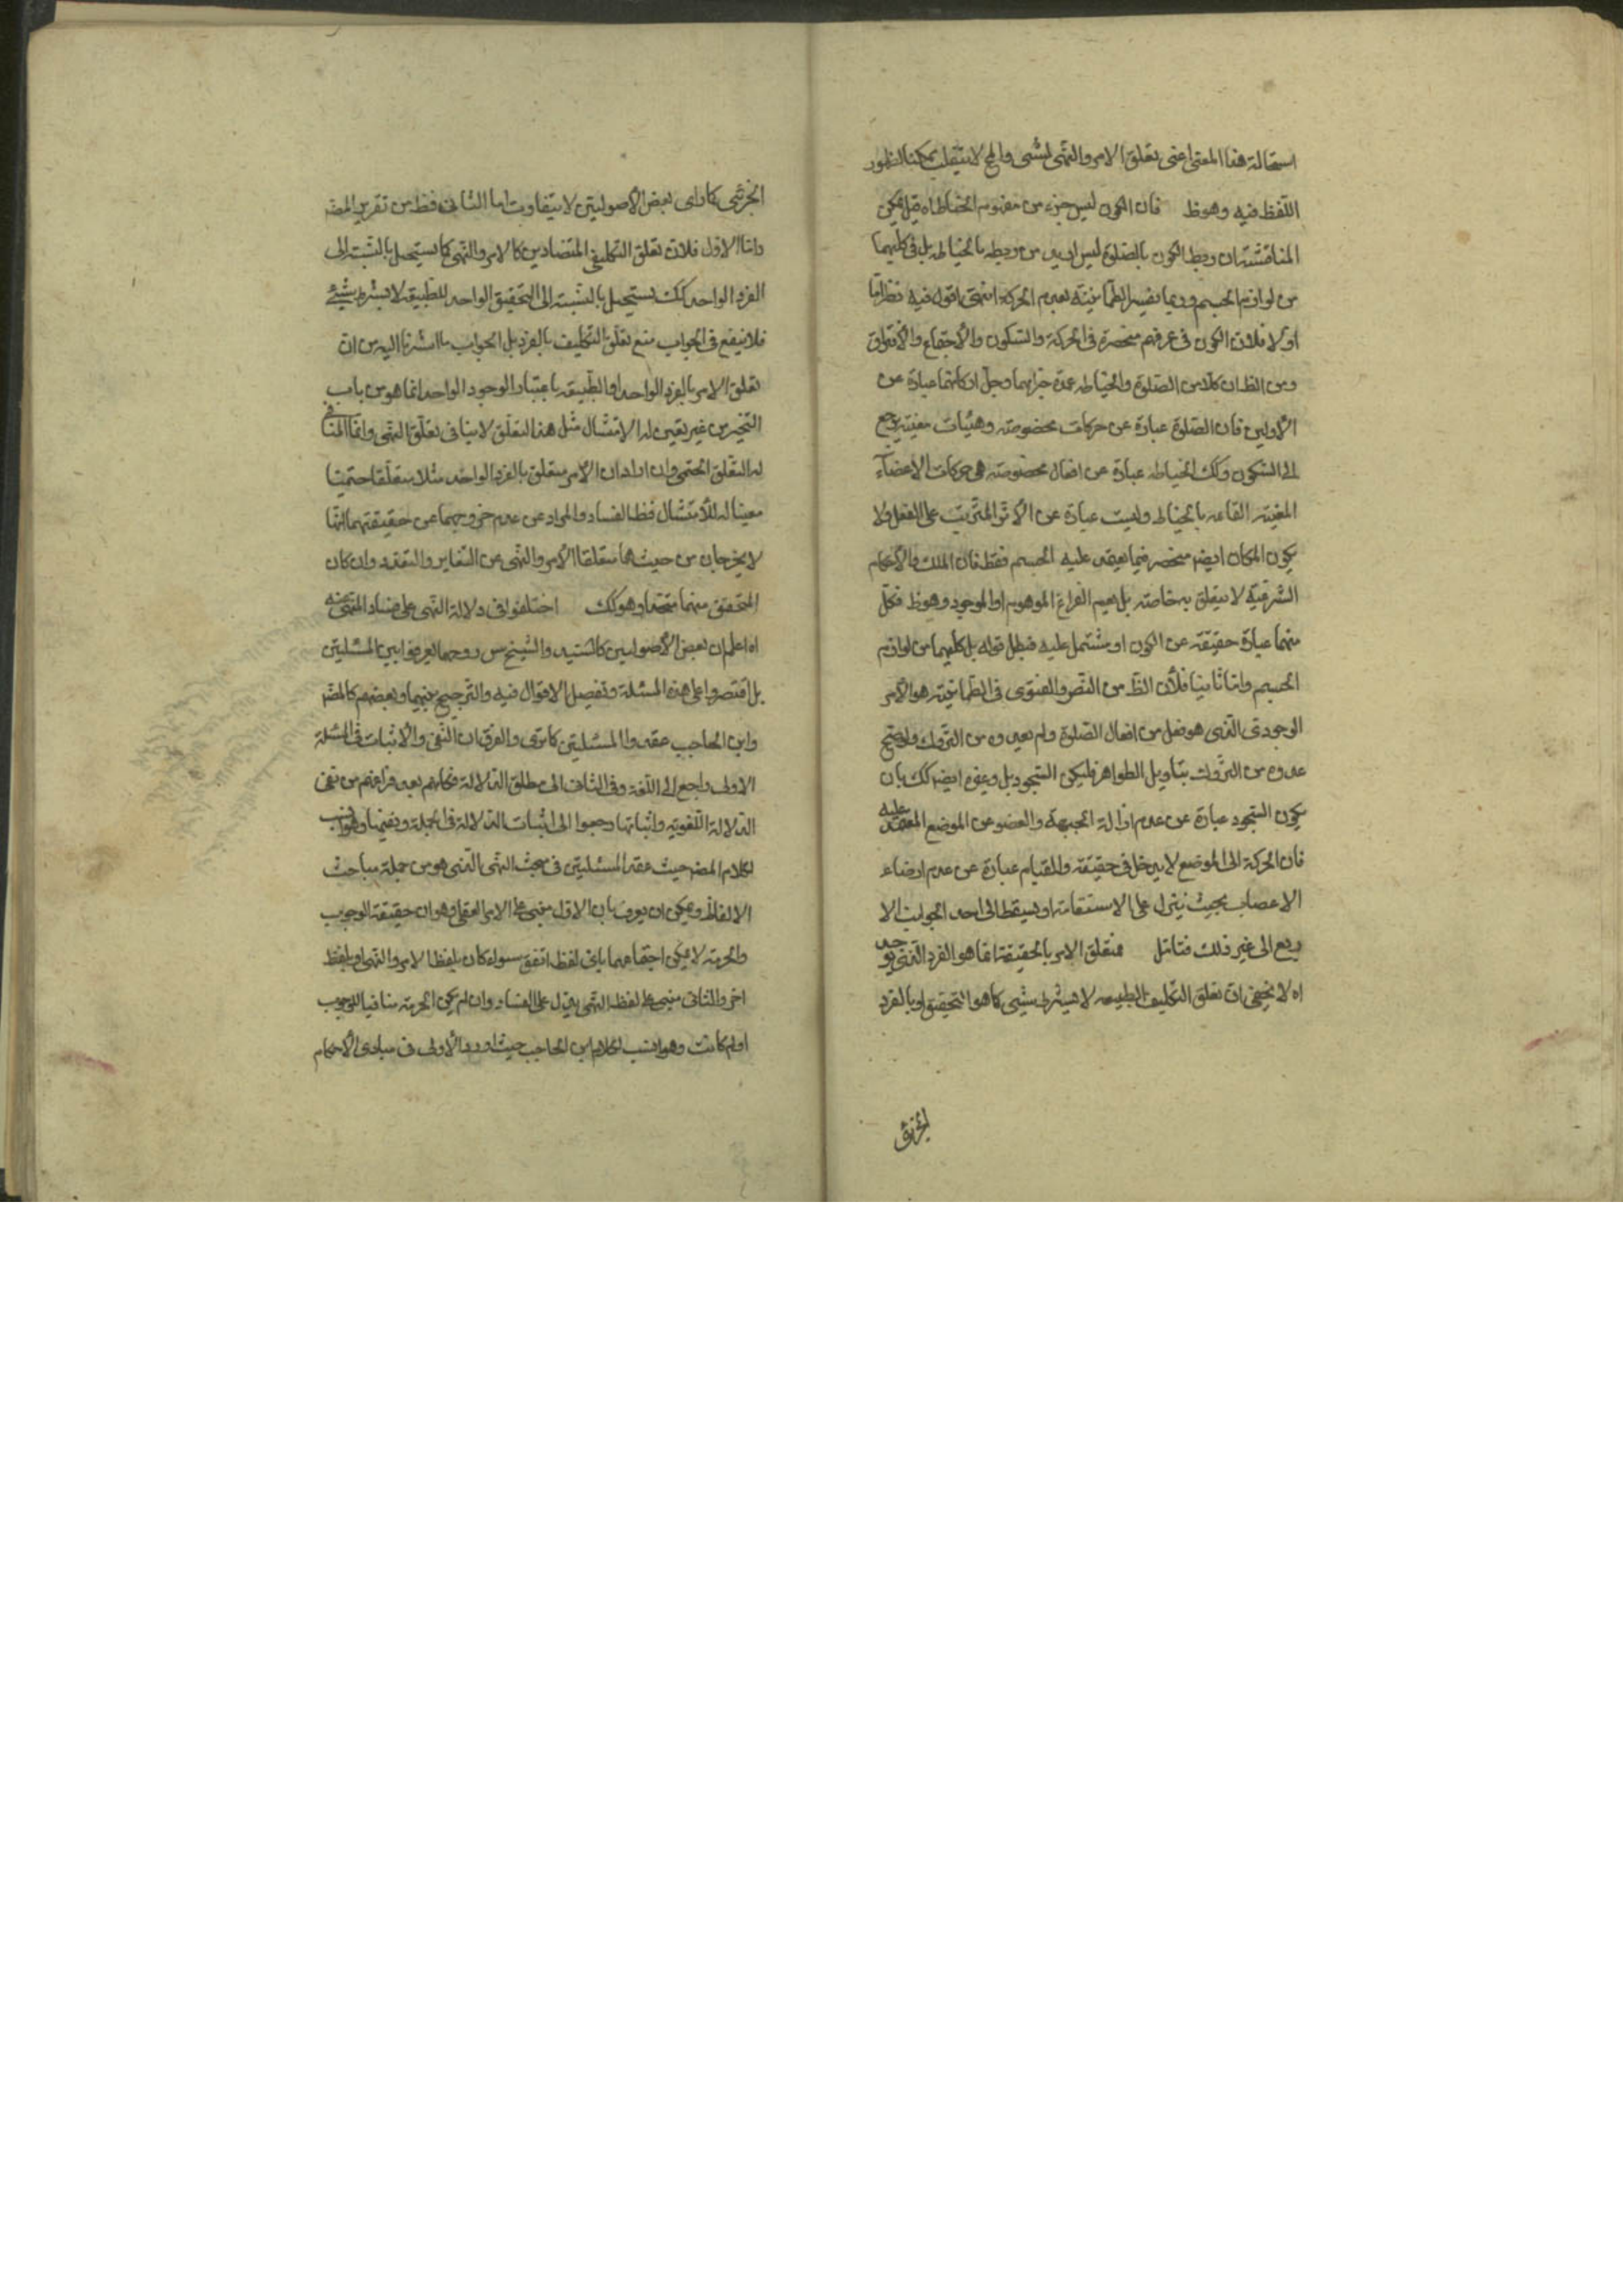 استحالة هذا المعنى اعنى تعلق الامر والنهى لشىء والمح لا ينقلب ممكنا لظهور
اللفظ فيه وهو ظ فان الكون ليس جزء من مفهوم الخياطة اه قيل يمكن
المناقشة بان ربط الكون بالصلوة ليس ازيد من ربطه بالخياطة بل فى كليهما
من لوازم الجسم وربما يفسر الطمأنينة بعدم الحركة انتهى اقول فيه نظر اما
اولا فلان الكون فى عرفهم منحصرة فى الحركة والسكون والاجتماع والافتراق
ومن الظ ان كلا من الصلوة والخياطة عمدة اجزائهما وجل اركانهما عبارة عن
الاولين فان الصلوة عبارة عن حركات مخصوصة وهيئات معينة يرجع
الى السكون وكك الخياطة عبارة عن افعال مخصوصة هى حركات الاعضاء
المعينة القائمة بالخياط وليست عبارة عن الاثر المترتب على الفعل ولا
يكون المكان ايض منحصر فيما يعتمد عليه الجسم فقط فان الملك والاحكام
الشرعية لا يتعلق به خاصة بل يعم الفراغ الموهوم او الموجود وهو ظ فكل
منهما عبارة حقيقة عن الكون او مشتمل عليه فبطل قوله بل كليهما من لوازم
الجسم واما ثانيا فلأن الظ من النص والفتوى فى الطمأنينة هو الامر
الوجودى الذى هو فعل من افعال الصلوة ولم يعدوه من التروك ولو صح
عدوه من التروك بتاويل الظواهر فليكن السجود بل وغيره ايض كك بان
يكون السجود عبارة عن عدم ازالة الجبهة والعضو عن الموضع المعتمد عليه
فان الحركة الى الموضع لا يدخل فى حقيقته والقيام عبارة عن عدم ارخاء
الاعصاب بحيث ينزل على الاستقامة او يسقط الى احد الجوانب الا
ربع الى غير ذلك فتامل فمتعلق الامر بالحقيقة انما هو الفرد الذى يوجد
اه لا يخفى ان تعلق التكليف بالطبيعه لا بشرط شىء كما هو التحقيق او بالفرد
الجزئى
الجزئى كما راى بعض الأصوليين لا يتفاوت اما الثانى فظ من تقرير المص
واما الاول فلان تعلق التكليفى المتضادين كالامر والنهى كما يستحيل بالنسبة الى
الفرد الواحد كك يستحيل بالنسبة الى التحقيق الواحد للطبيعة لا بشرط شىء
فلا ينفع فى الجواب منع تعلق التكليف بالفرد بل الجواب ما اشرنا اليه من ان
تعلق الامر بالفرد الواحد او الطبيعة باعتبار الوجود الواحد انما هو من باب
التخيير من غير تعيين له للامتثال مثل هذا التعلق لا ينافى تعلق النهى وانما المنافى
له التعلق الحتمى وان اراد ان الامر متعلق بالفرد الواحد مثلا متعلقا حتميا
معينا له للامتثال فظ الفساد والمراد عن عدم خروجهما عن حقيقتهما انهما
لا يخرجان من حيث هما متعلقا الأمر والنهى عن التغاير والتعدد وان كان
المتحقق منهما متحدا وهو كك اختلفوا فى دلالة النهى على فساد المنهى عنه
اه اعلم ان بعض الأصوليين كالسيد والشيخ س روحهما لم يفرقوا بين المسئلتين
بل اقتصروا على هذه المسئلة وتفصيل الاقوال فيه والترجيح بينهما وبعضهم كالمص
وابن الحاجب عقدوا المسئلتين كما ترى والفرق ان النفى والاثبات فى المسئلة
الاولى راجع الى اللغة وفى الثانى الى مطلق الدلالة فكانهم بعد فراغهم من نفى
الدلالة اللغوية واثباتها رجعوا الى اثبات الدلالة فى الجملة ونفيها وهو انسب
لكلام المص حيث عقد المسئلتين فى مبحث النهى الذى هو من جملة مباحث
الالفاظ ويمكن ان يفرق بان الاول مبنى على الامر العقلى وهو ان حقيقة الوجوب
والحرمة لا يمكن اجتماعهما باى لفظ اتفق سواء كان بلفظ الامر والنهى او بلفظ
اخر والثانى مبنى على لفظ النهى يدل على الفساد وان لم يكن الحرمة منافيا للوجوب
او لم كانت وهو انسب لكلام ابن الحاجب حيث اورد الأولى فى مبادى الاحكام